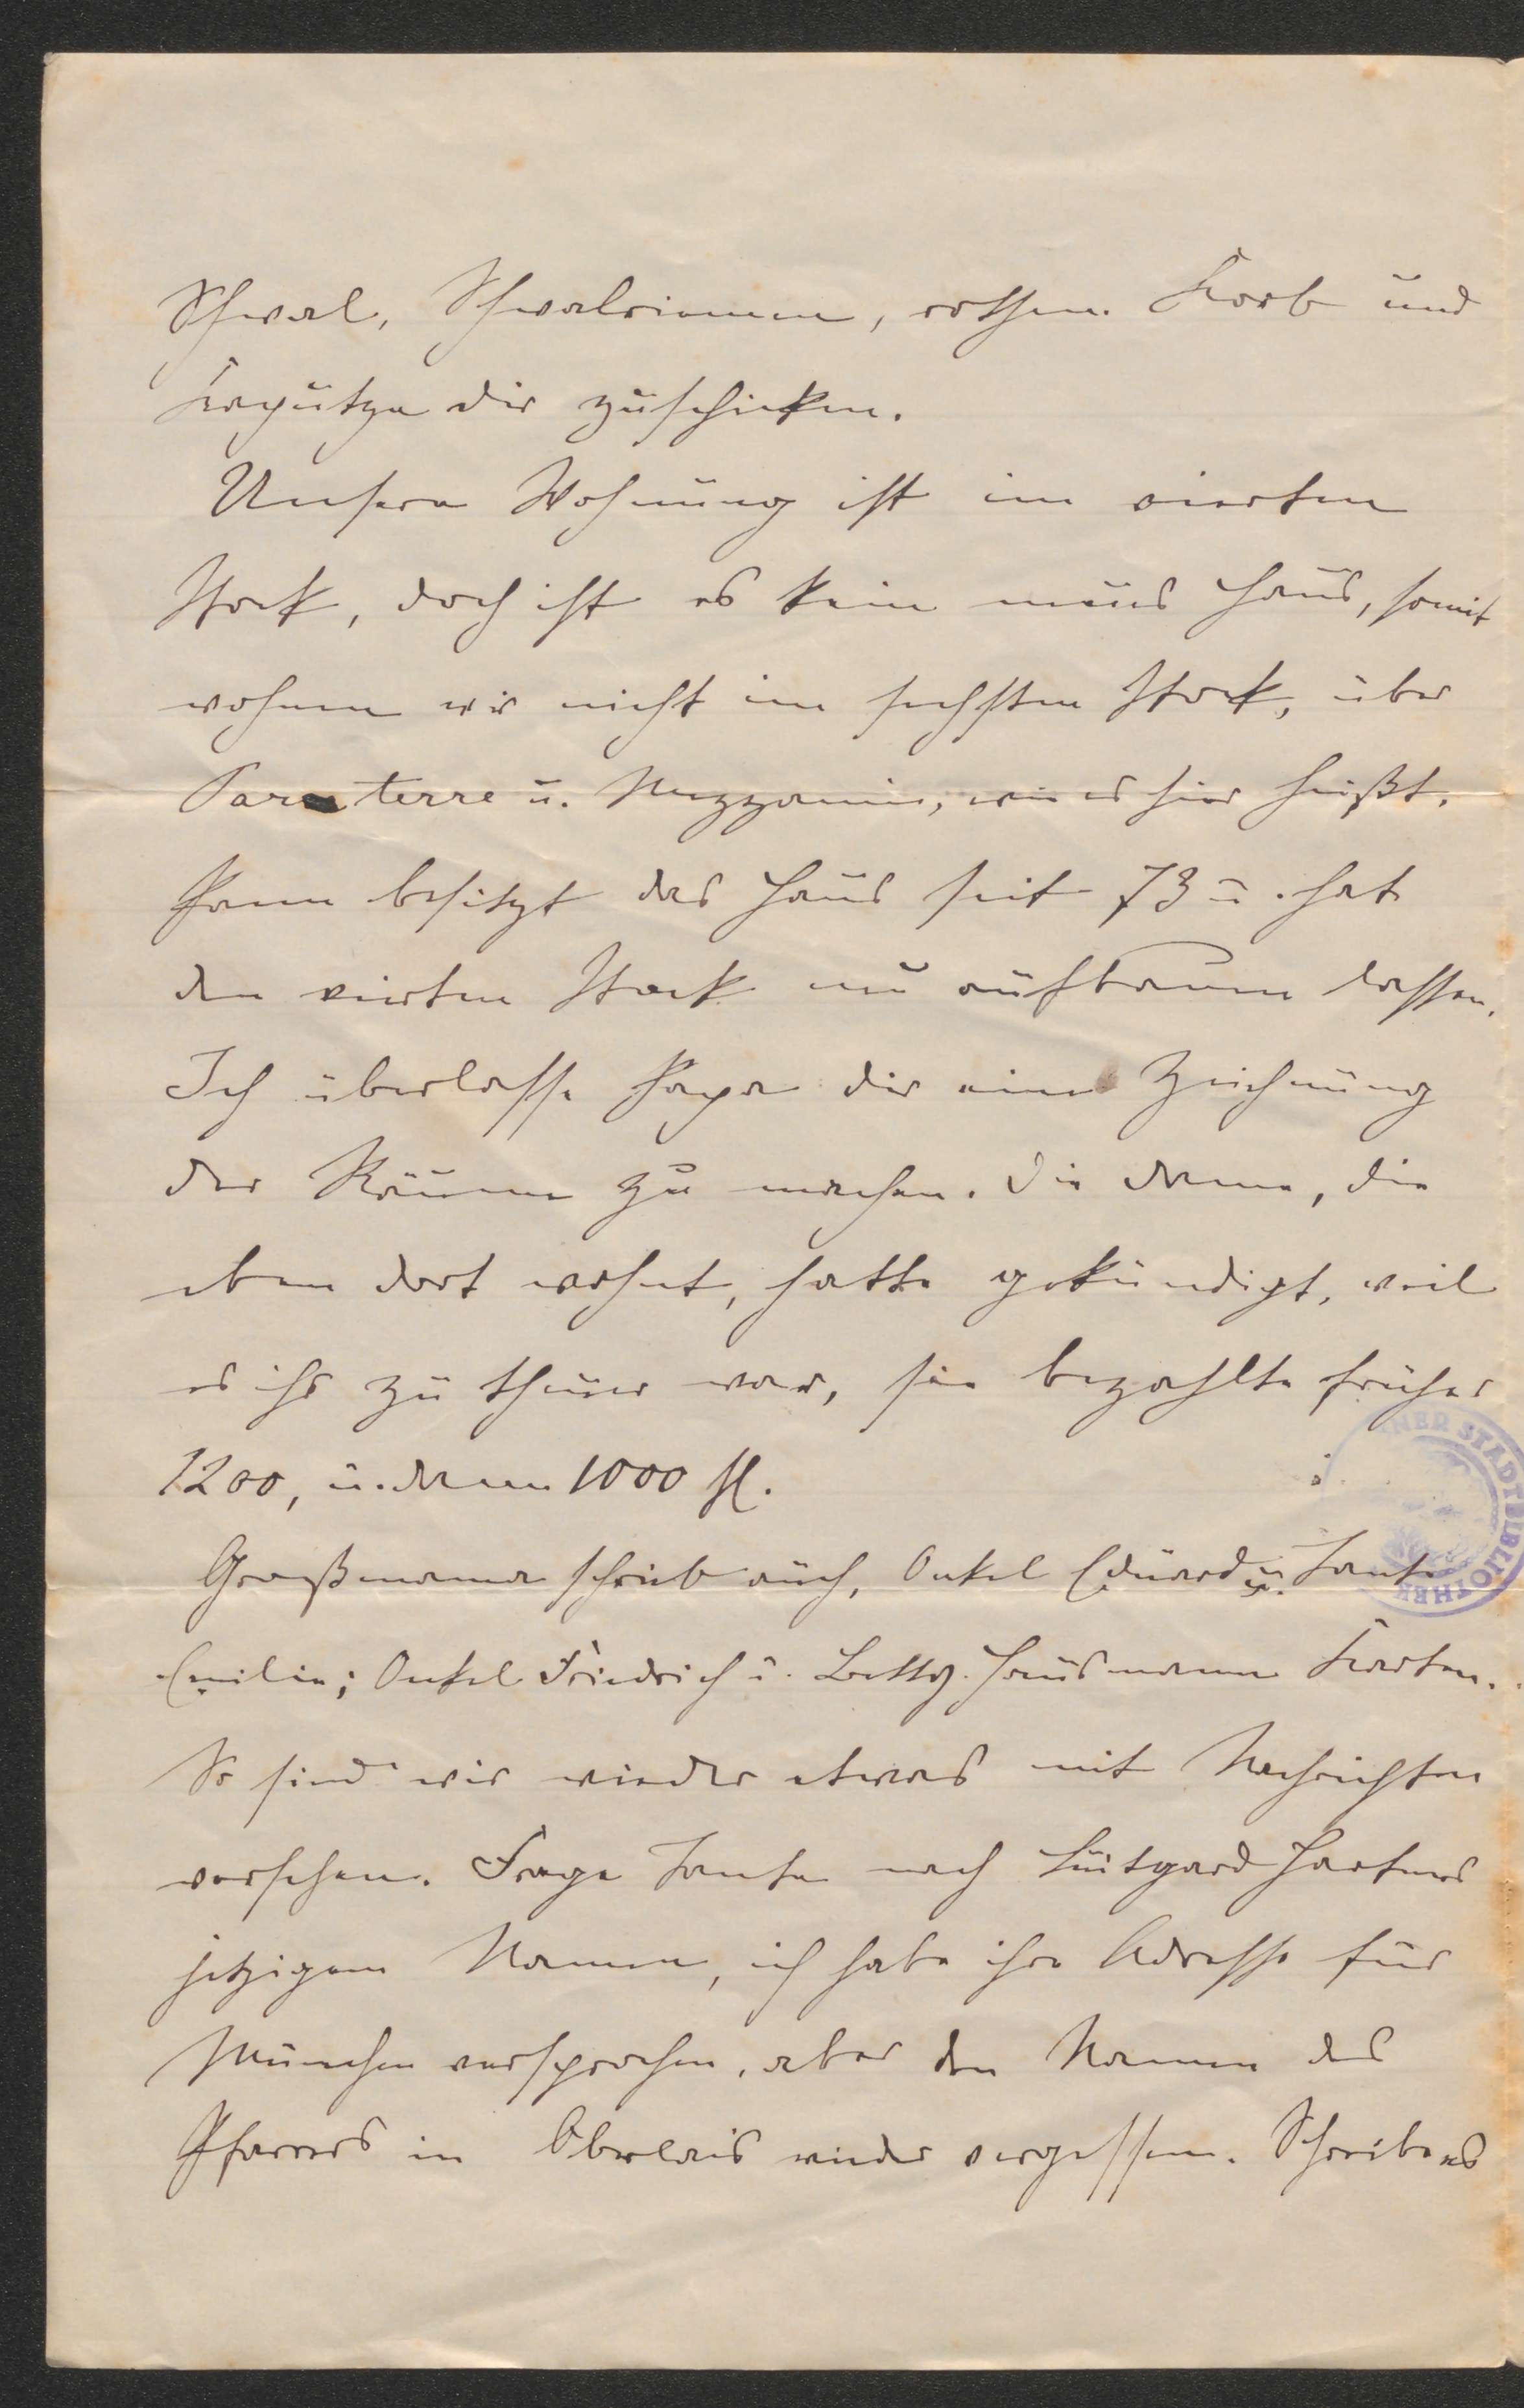 Schwal, Schwalriemen, rothen Korb und
Kaputze dir zuschicken.
Unsere Wohnung ist im vierten
Stock, doch ist es kein neues Haus, somit
wohnen wir nicht im sechsten Stock, über
Parterre u. Mezzanin, wie es hier heißt.
Hann besitzt das Haus seit 73 u. hat
den vierten Stock neu aufbauen lassen.
Ich überlasse Papa dir eine Zeichnung
der Räume zu machen. Die Dame, die
eben dort wohnt, hatte gekündigt, weil
es ihr zu theuer war, sie bezahlte früher
1200, u. dann 1000 fl.
Großmama schrieb auch, Onkel Eduard u. Tante
Emilie; Onkel Friedrich u. Betty Hausmann Karten.
So sind wir wieder etwas mit Nachrichten
versehen. Frage Tante nach Luitgard Hartners
jetzigem Namen, ich habe ihre Adresse für
München versprochen, aber den Namen des
Pfarrers in Oberlais wieder vergessen. Schreibe es
WIENER STADTBIBLIOTHEK